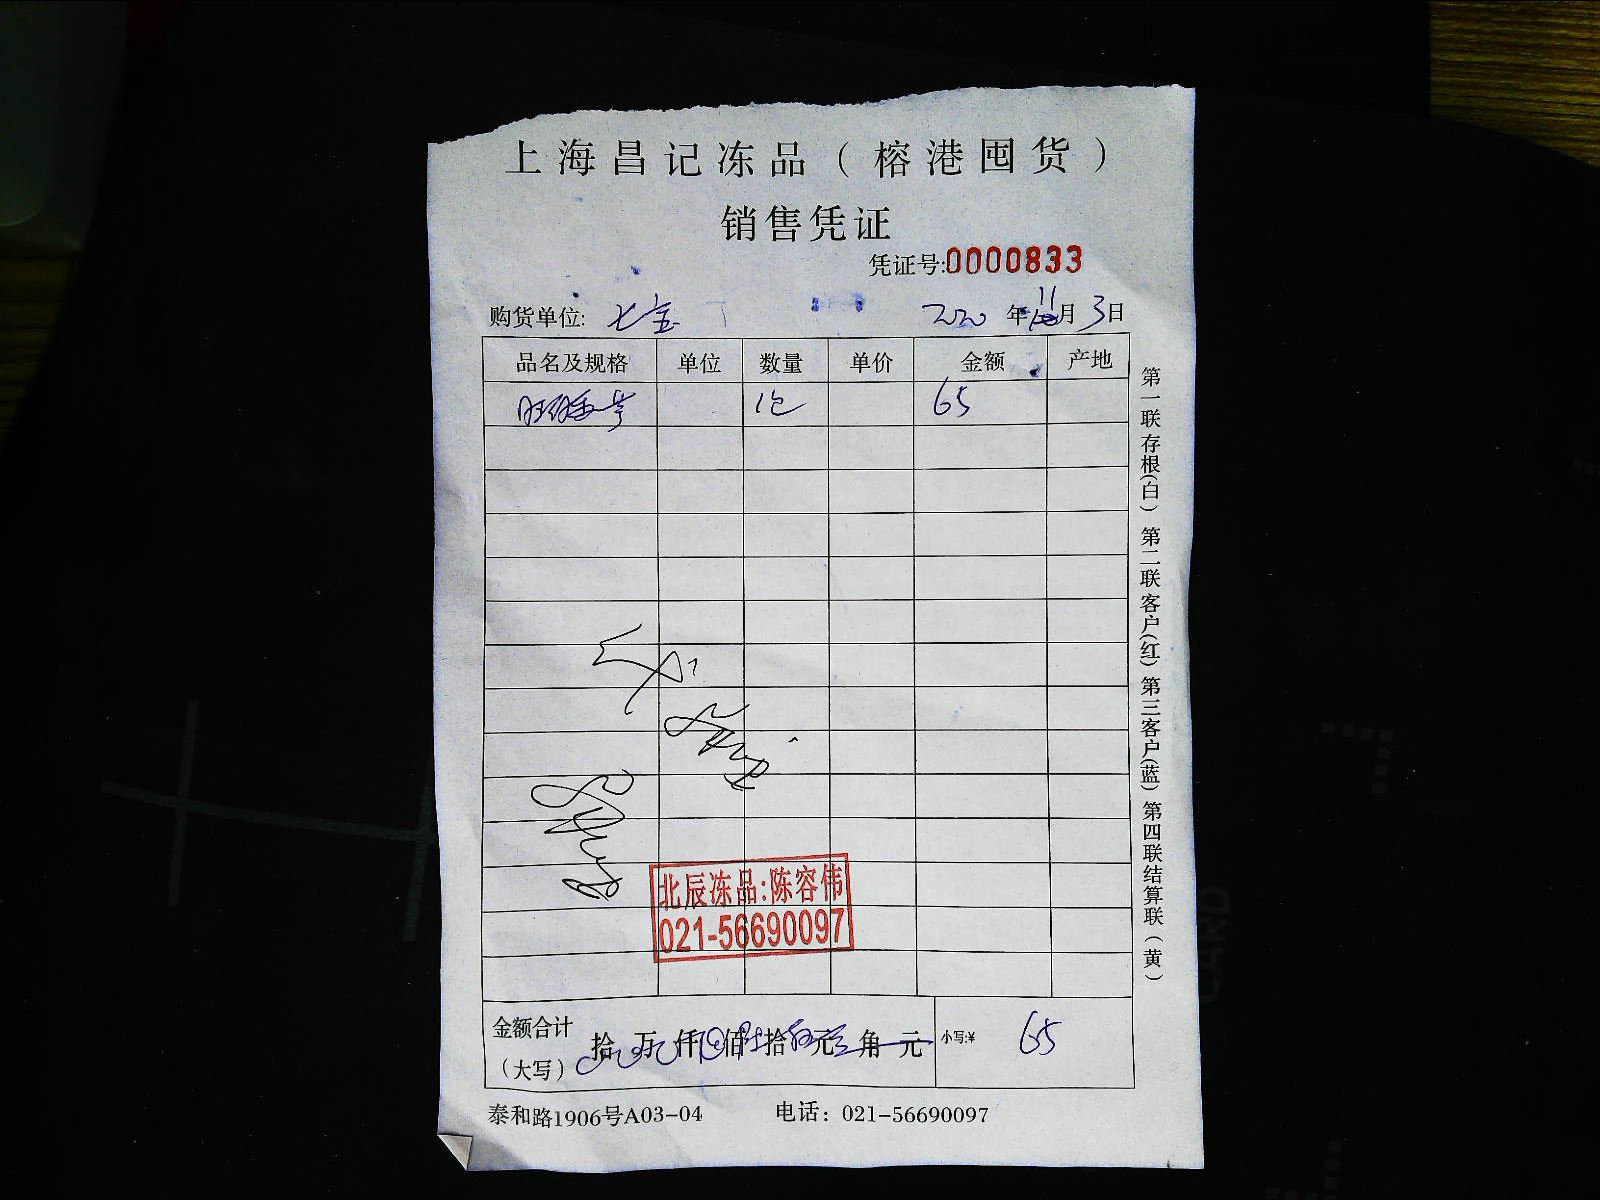 上海昌记冻品（榕港囤货）
销售凭证
凭证号:0000833
购货单位: 七宝 2020年11月3日
品名及规格 单位 数量 单价 金额 产地
1包 65
北辰冻品:陈容伟
021-56690097
金额合计（大写） 拾 万 仟 佰 陆拾伍元 角 元 小写:¥ 65
泰和路1906号A03-04 电话：021-56690097
第一联存根(白) 第二联客户(红) 第三客户(蓝) 第四联结算联(黄)